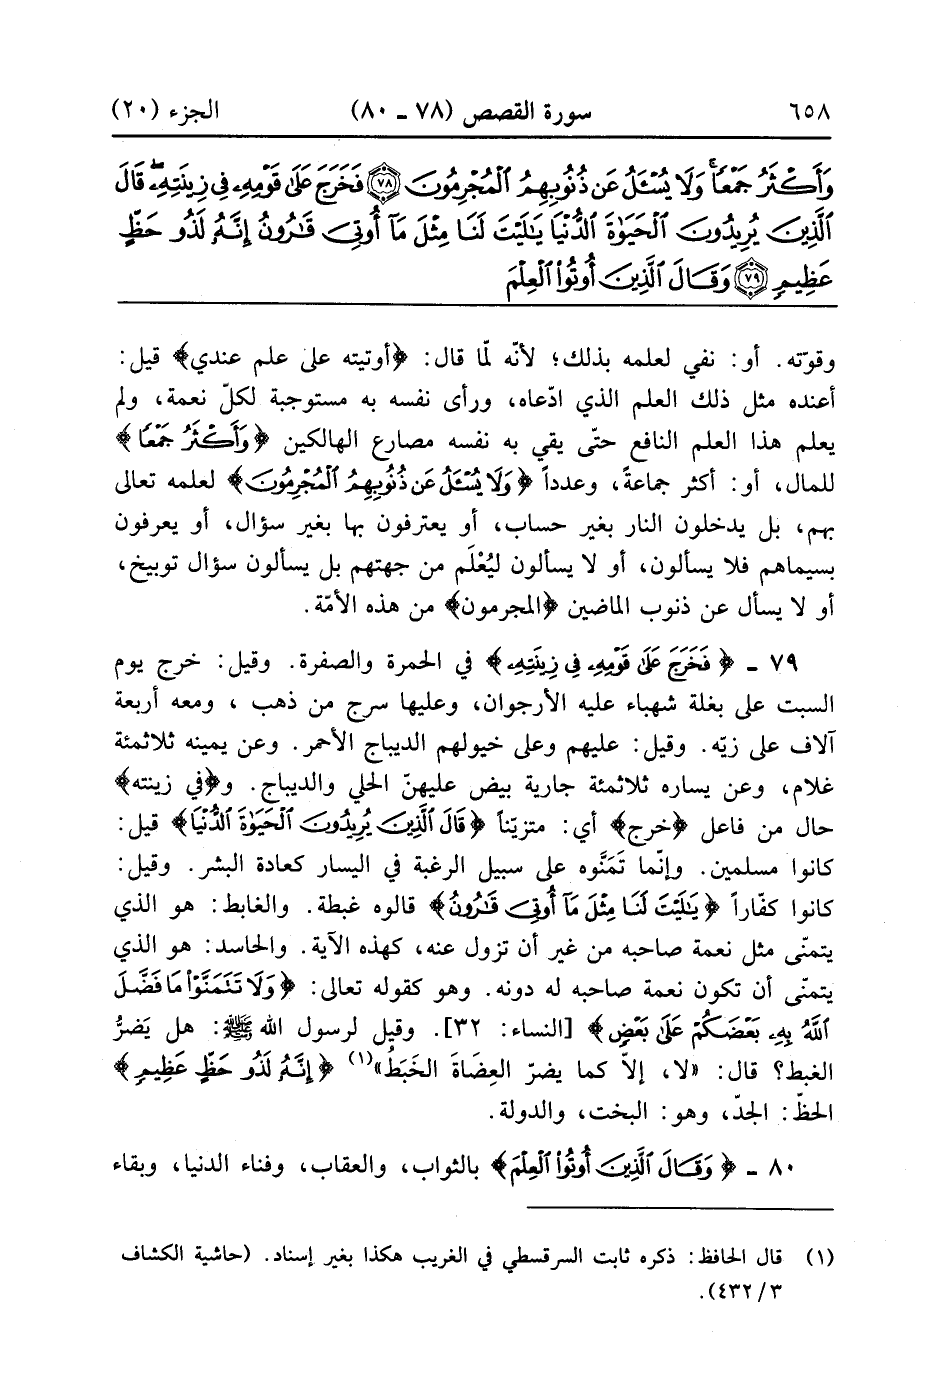 ٦٥٨ سورة القصص (٧٨ ـ ٨٠) الجزء (٢٠)
وَأَكْثَرُ جَمْعًا ۚ وَلَا يُسْـَٔلُ عَن ذُنُوبِهِمُ ٱلْمُجْرِمُونَ ﴿٧٨﴾ فَخَرَجَ عَلَىٰ قَوْمِهِۦ فِى زِينَتِهِۦ ۖ قَالَ
ٱلَّذِينَ يُرِيدُونَ ٱلْحَيَوٰةَ ٱلدُّنْيَا يَٰلَيْتَ لَنَا مِثْلَ مَآ أُوتِىَ قَٰرُونُ إِنَّهُۥ لَذُو حَظٍّ
عَظِيمٍ ﴿٧٩﴾ وَقَالَ ٱلَّذِينَ أُوتُوا۟ ٱلْعِلْمَ
وقوّته. أو: نفي لعلمه بذلك؛ لأنّه لمّا قال: ﴿أوتيته على علم عندي﴾ قيل:
أعنده مثل ذلك العلم الذي ادّعاه، ورأى نفسه به مستوجبة لكلّ نعمة، ولم
يعلم هذا العلم النافع حتّى يقي به نفسه مصارع الهالكين ﴿وَأَكْثَرُ جَمْعًا﴾
للمال، أو: أكثر جماعةً، وعدداً ﴿وَلَا يُسْـَٔلُ عَن ذُنُوبِهِمُ ٱلْمُجْرِمُونَ﴾ لعلمه تعالى
بهم، بل يدخلون النار بغير حساب، أو يعترفون بها بغير سؤال، أو يعرفون
بسيماهم فلا يسألون، أو لا يسألون ليُعْلَم من جهتهم بل يسألون سؤال توبيخ،
أو لا يسأل عن ذنوب الماضين ﴿المجرمون﴾ من هذه الأمّة.
٧٩ ـ ﴿فَخَرَجَ عَلَىٰ قَوْمِهِۦ فِى زِينَتِهِۦ﴾ في الحمرة والصفرة. وقيل: خرج يوم
السبت على بغلة شهباء عليه الأرجوان، وعليها سرج من ذهب ، ومعه أربعة
آلاف على زيّه. وقيل: عليهم وعلى خيولهم الديباج الأحمر. وعن يمينه ثلاثمئة
غلام، وعن يساره ثلاثمئة جارية بيض عليهنّ الحلي والديباج. و﴿في زينته﴾
حال من فاعل ﴿خرج﴾ أي: متزيّناً ﴿قَالَ ٱلَّذِينَ يُرِيدُونَ ٱلْحَيَوٰةَ ٱلدُّنْيَا﴾ قيل:
كانوا مسلمين. وإنّما تَمَنَّوه على سبيل الرغبة في اليسار كعادة البشر. وقيل:
كانوا كفّاراً ﴿يَٰلَيْتَ لَنَا مِثْلَ مَآ أُوتِىَ قَٰرُونُ﴾ قالوه غبطة. والغابط: هو الذي
يتمنّى مثل نعمة صاحبه من غير أن تزول عنه، كهذه الآية. والحاسد: هو الذي
يتمنّى أن تكون نعمة صاحبه له دونه. وهو كقوله تعالى: ﴿وَلَا تَتَمَنَّوْا۟ مَا فَضَّلَ
ٱللَّهُ بِهِۦ بَعْضَكُمْ عَلَىٰ بَعْضٍ﴾ [النساء: ٣٢]. وقيل لرسول الله ﷺ: هل يَضرُّ
الغبط؟ قال: «لا، إلاّ كما يضرّ العِضَاةَ الخَبَطُ»(١) ﴿إِنَّهُۥ لَذُو حَظٍّ عَظِيمٍ﴾
الحظّ: الجدّ، وهو: البخت، والدولة.
٨٠ ـ ﴿وَقَالَ ٱلَّذِينَ أُوتُوا۟ ٱلْعِلْمَ﴾ بالثواب، والعقاب، وفناء الدنيا، وبقاء
(١) قال الحافظ: ذكره ثابت السرقسطي في الغريب هكذا بغير إسناد. (حاشية الكشاف
٣/ ٤٣٢).